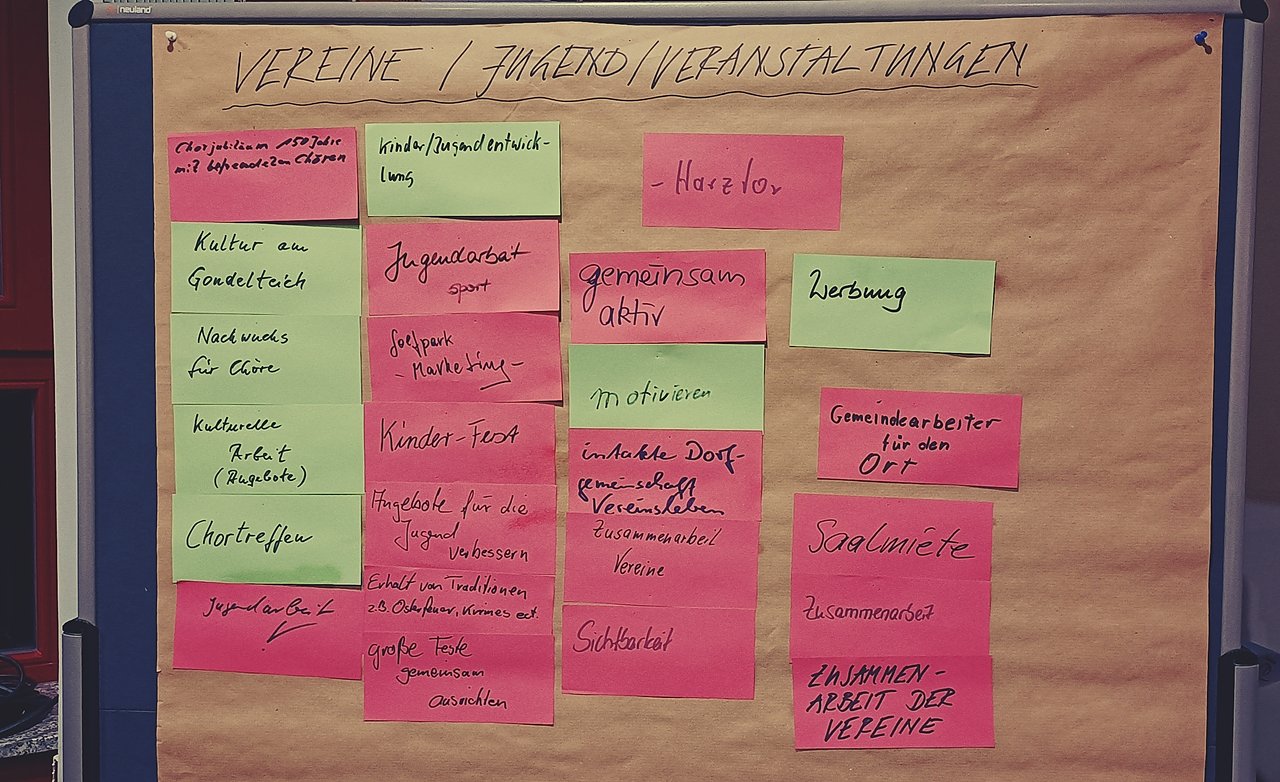 neuland
VEREINE / JUGEND/VERANSTALTUNGEN
Chorjubiläum 150 Jahre
mit befreundeten Chören
Kultur am
Gondelteich
Nachwuchs
für Chöre
Kulturelle
Arbeit
(Angebote)
Chortreffen
Jugendarbeit
Kinder/Jugendentwick-
lung
Jugendarbeit
sport
Golfpark
- Marketing -
Kinder-Fest
Angebote für die
Jugend
verbessern
Erhalt von Traditionen
z.B. Osterfeuer, Kirmes ect.
große Feste
gemeinsam
ausrichten
- Harztor
gemeinsam
aktiv
motivieren
intakte Dorf-
gemeinschaft
Vereinsleben
Zusammenarbeit
Vereine
Sichtbarkeit
Werbung
Gemeindearbeiter
für den
Ort
Saalmiete
Zusammenarbeit
ZUSAMMEN-
ARBEIT DER
VEREINE